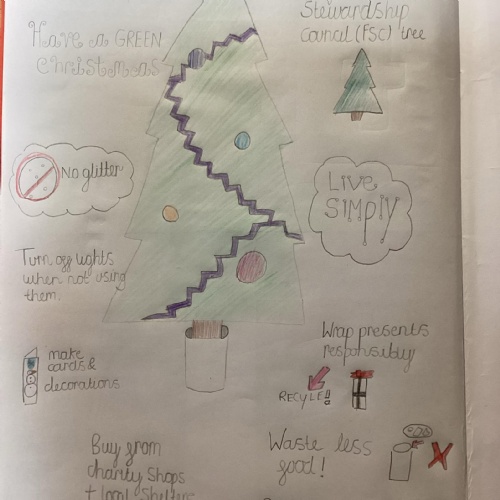 Have a GREEN
Christmas
Stewardship
Council (FSC) tree
No glitter
Live
SIMPlY
Turn off lights
when not using
them.
make
cards &
decorations
Wrap presents
responsibly
RECYLE!!
Buy from
charity Shops
+ local Shelters
Waste less
good!